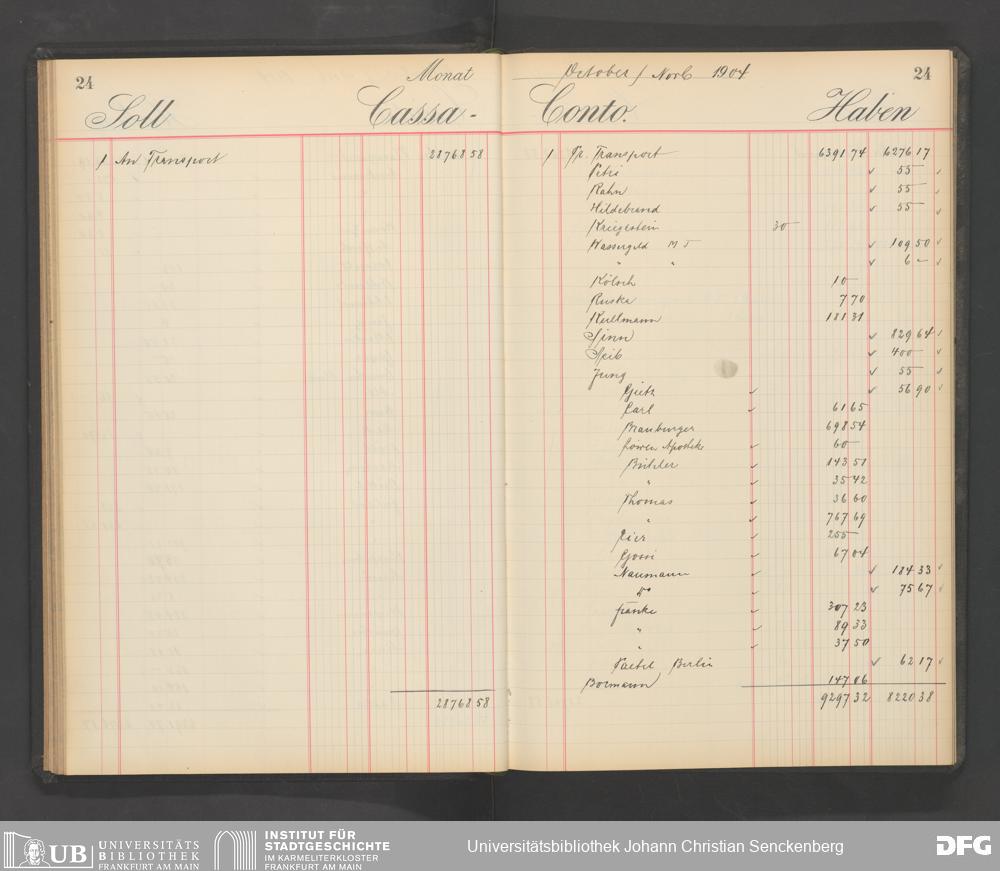 24
Monat
Soll
Cassa-
1 An Transport 28768 58
28768 58
October / Novb 1904
24
Conto.
Haben
1 Pr. Transport 6391 74 6276 17
Petri ✓ 55 — ✓
Rahn ✓ 55 — ✓
Hildebrand ✓ 55 — ✓
Kriegstein 30 —
Wassergeld ✓ 109 50 ✓
" " ✓ 6 — ✓
Kölsch 10 —
Ruska 7 70
Kullmann 181 31
Sinn ✓ 829 64 ✓
Seib ✓ 400 — ✓
Jung ✓ 55 — ✓
Gietz ✓ ✓ 56 90 ✓
Carl ✓ 61 65
Brauburger 698 54
Löwen Apotheke ✓ 60 —
Bühler ✓ 143 51
" ✓ 35 42
Thomas ✓ 36 60
" ✓ 767 69
✓ 255 —
Gossi ✓ 67 04
Naumann ✓ ✓ 184 33 ✓
do ✓ ✓ 75 67 ✓
Franke ✓ 307 23
" ✓ 89 33
" ✓ 37 50
Paetel Berlin ✓ 62 17 ✓
Bormann 147 06
9297 32 8220 38
UB
UNIVERSITÄTS
BIBLIOTHEK
FRANKFURT AM MAIN
INSTITUT FÜR
STADTGESCHICHTE
IM KARMELITERKLOSTER
FRANKFURT AM MAIN
Universitätsbibliothek Johann Christian Senckenberg
DFG